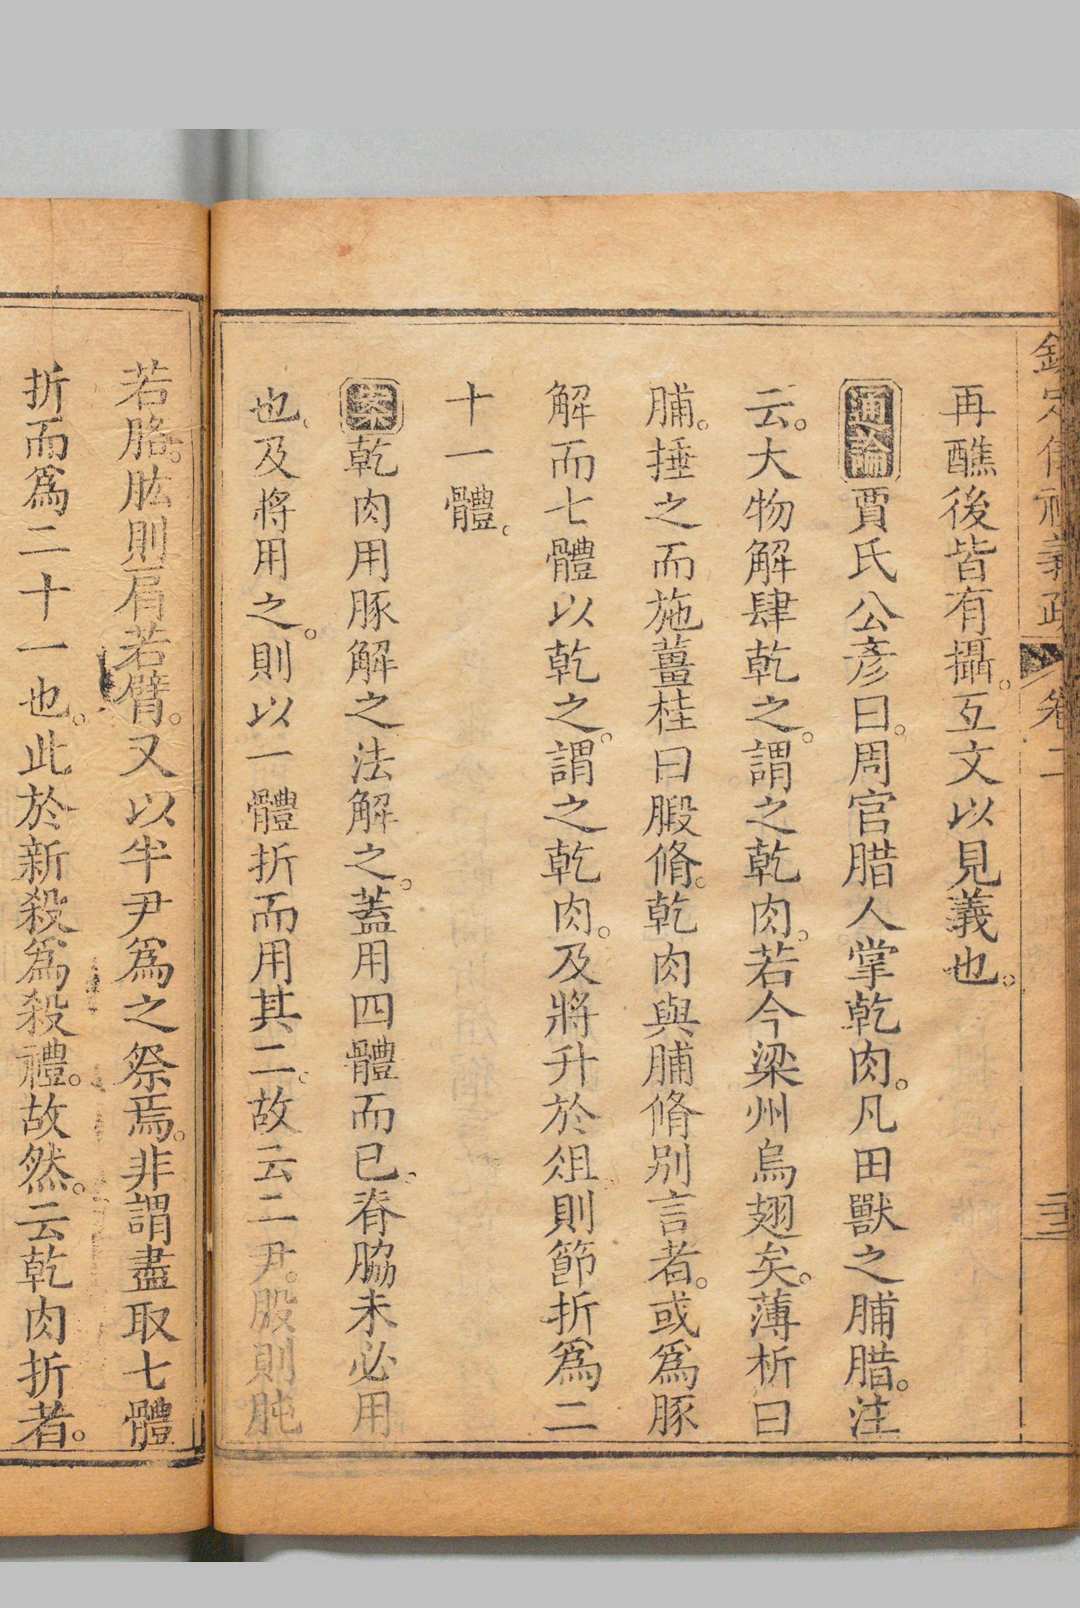 欽定儀禮義疏 卷二 二十三
再醮後皆有攝。互文以見義也。
通論賈氏公彥曰。周官腊人掌乾肉。凡田獸之脯腊。注
云。大物解肆乾之。謂之乾肉。若今梁州烏翅矣。薄析曰
脯。捶之而施薑桂曰腶脩。乾肉與脯脩別言者。或為豚
解而七體以乾之。謂之乾肉。及將升於俎則節折為二
十一體。
案乾肉用豚解之法解之。蓋用四體而已。脊脇未必用
也。及將用之。則以一體折而用其二。故云二尹。股則肫
若胳。肱則肩若臂。又以半尹為之祭焉。非謂盡取七體
折而為二十一也。此於新殺為殺禮。故然。云乾肉折者。